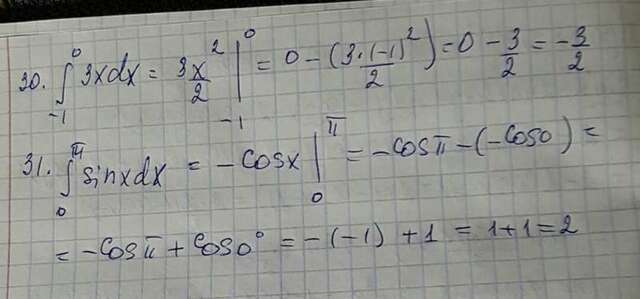 30. ∫₋₁⁰ 3xdx = 3x²/2 |₋₁⁰ = 0 - (3·(-1)²/2) = 0 - 3/2 = -3/2
31. ∫₀^π sinxdx = -cosx |₀^π = -cosπ-(-cos0) =
= -cosπ + cos0° = -(-1) +1 = 1+1=2